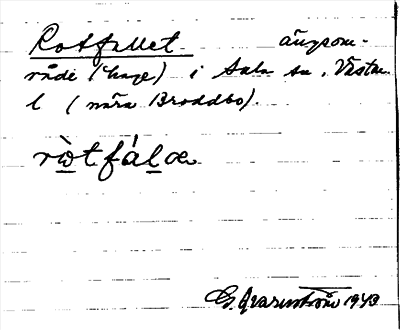 Rotfallet ängsom-
råde (hage) i Sala sn, Västm.
l (nära Broddbo).
ròtfálɑ
G. Qvarnström 1943